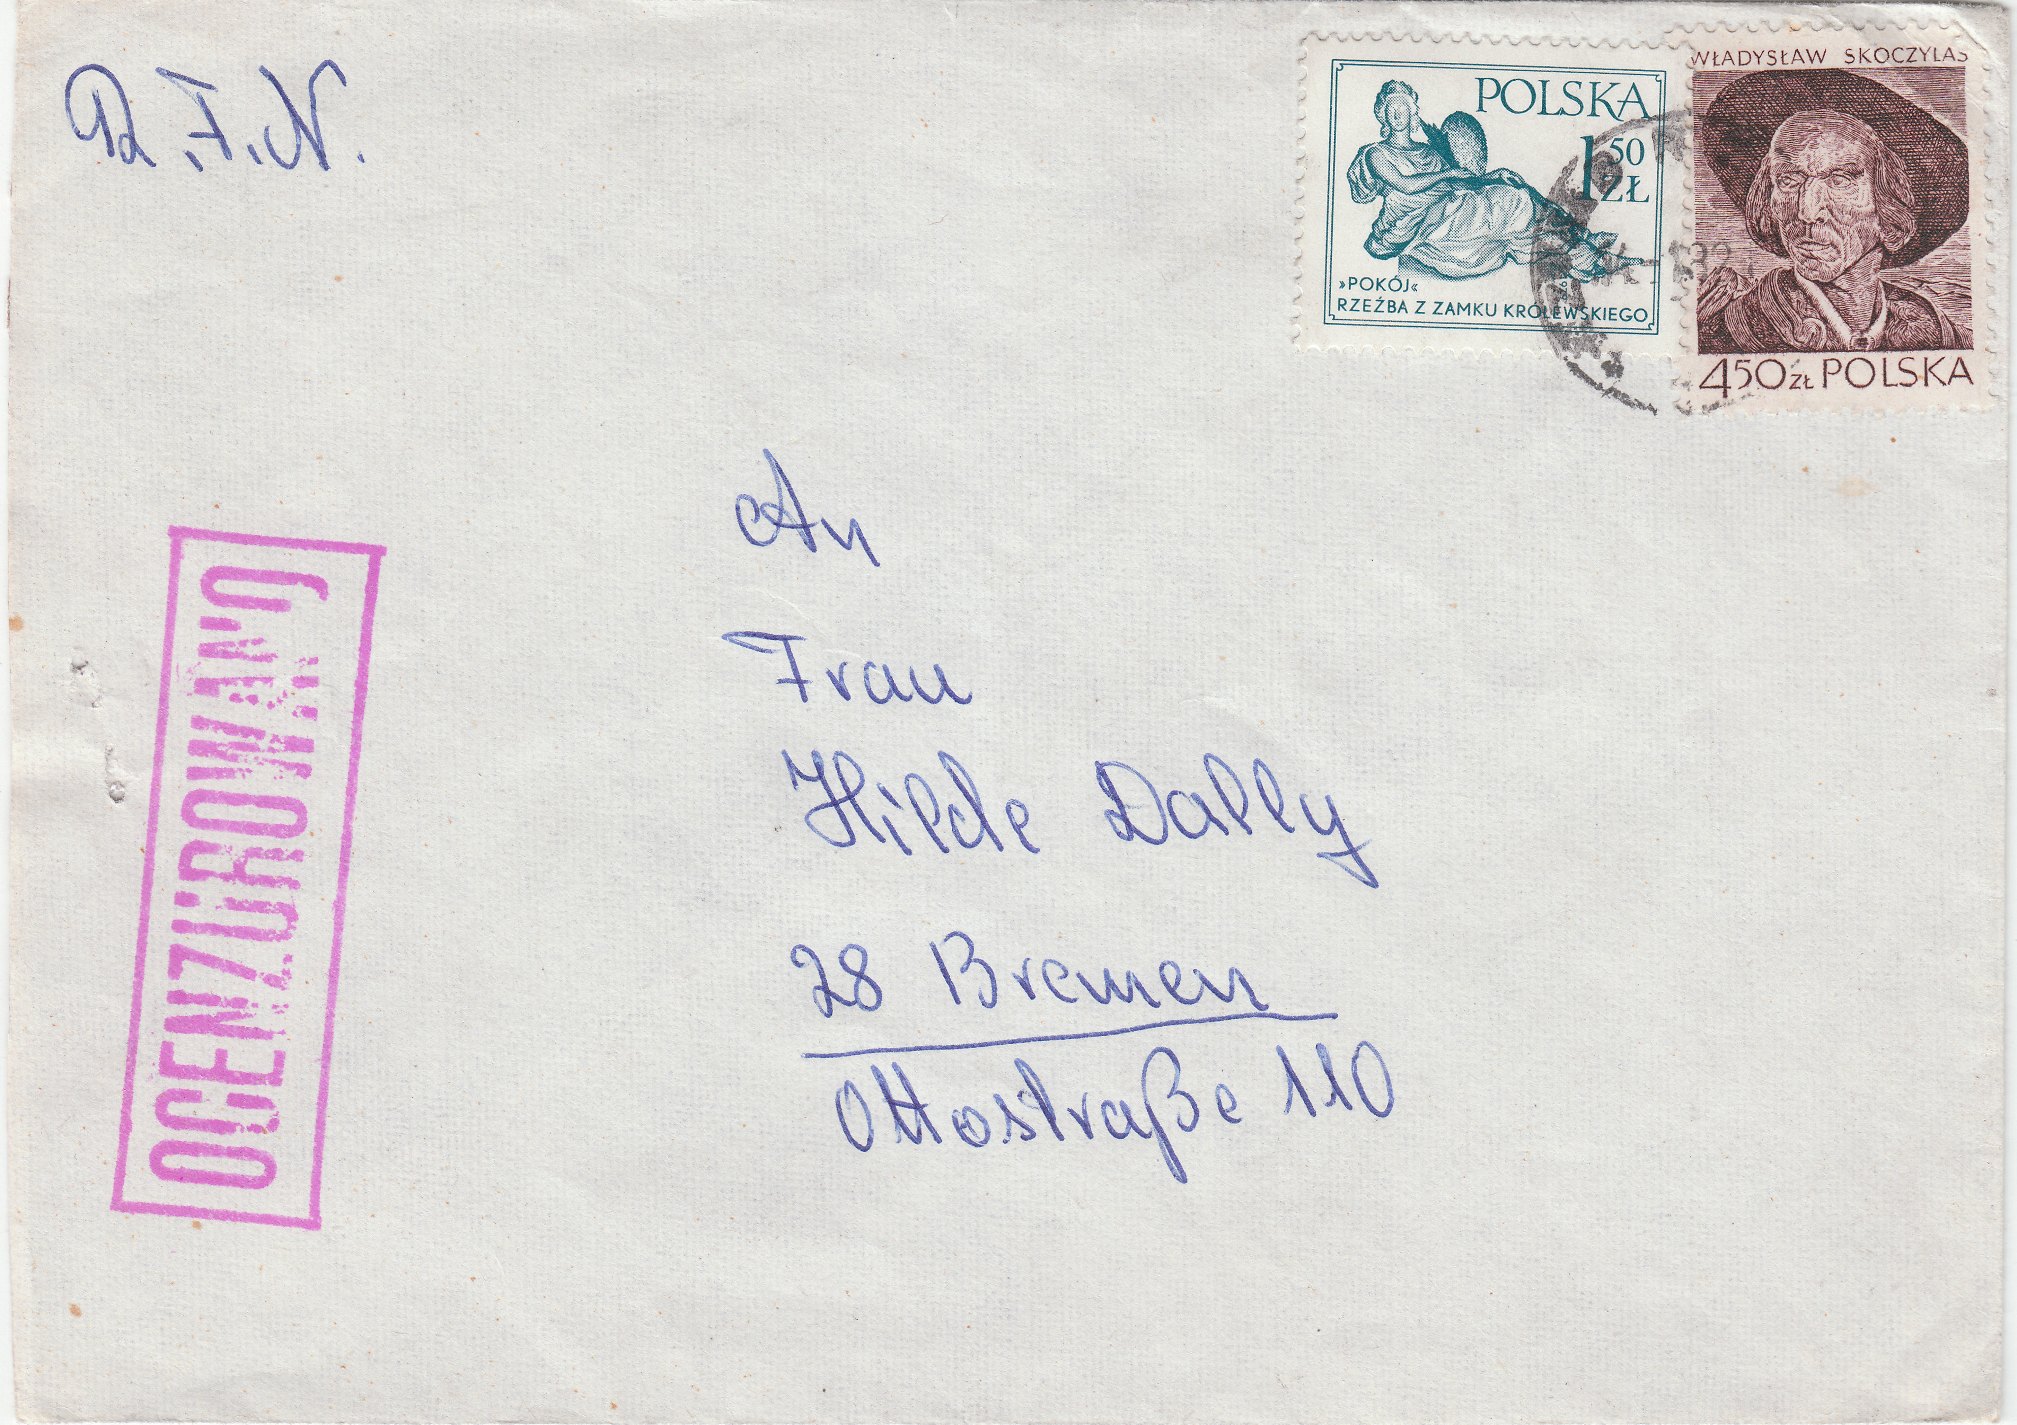 R.F.N.
POLSKA
1 50 ZŁ
»POKÓJ«
RZEŹBA Z ZAMKU KRÓLEWSKIEGO
WŁADYSŁAW SKOCZYLAS
450 ZŁ POLSKA
OCENZUROWANO
An
Frau
Hilde Dally
28 Bremen
Ottostraße 110